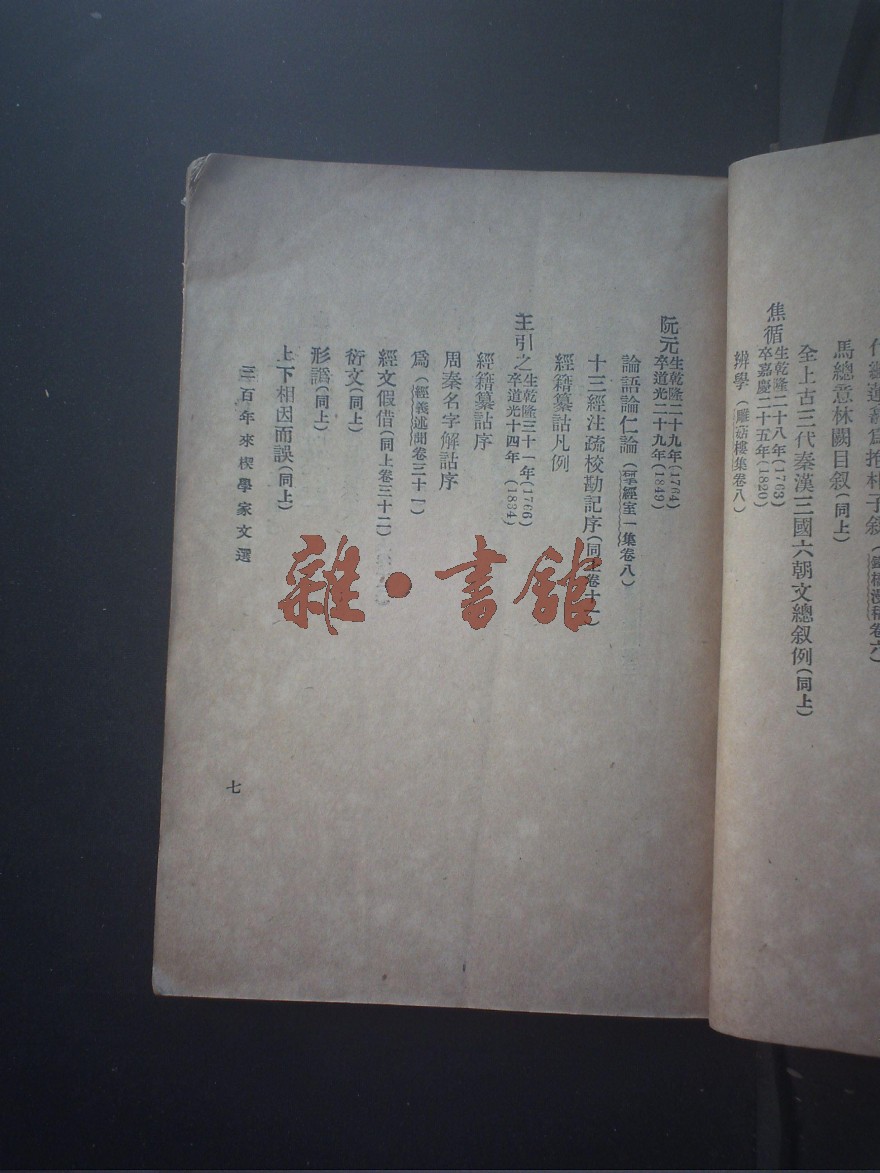 馬總意林闕目叙(同上)
全上古三代秦漢三國六朝文總叙例(同上)
焦循生乾隆二十八年(1763)卒嘉慶二十五年(1820)
辨學(雕菰樓集卷八)
阮元生乾隆二十九年(1764)卒道光二十九年(1849)
論語論仁論(揅經室一集卷八)
十三經注疏校勘記序(同上卷十一)
經籍纂詁凡例
王引之生乾隆三十一年(1766)卒道光十四年(1834)
經籍纂詁序
周秦名字解詁序
爲(經義述聞卷三十一)
經文假借(同上卷三十二)
衍文(同上)
形譌(同上)
上下相因而誤(同上)
三百年來楔學家文選
七
雜·書館